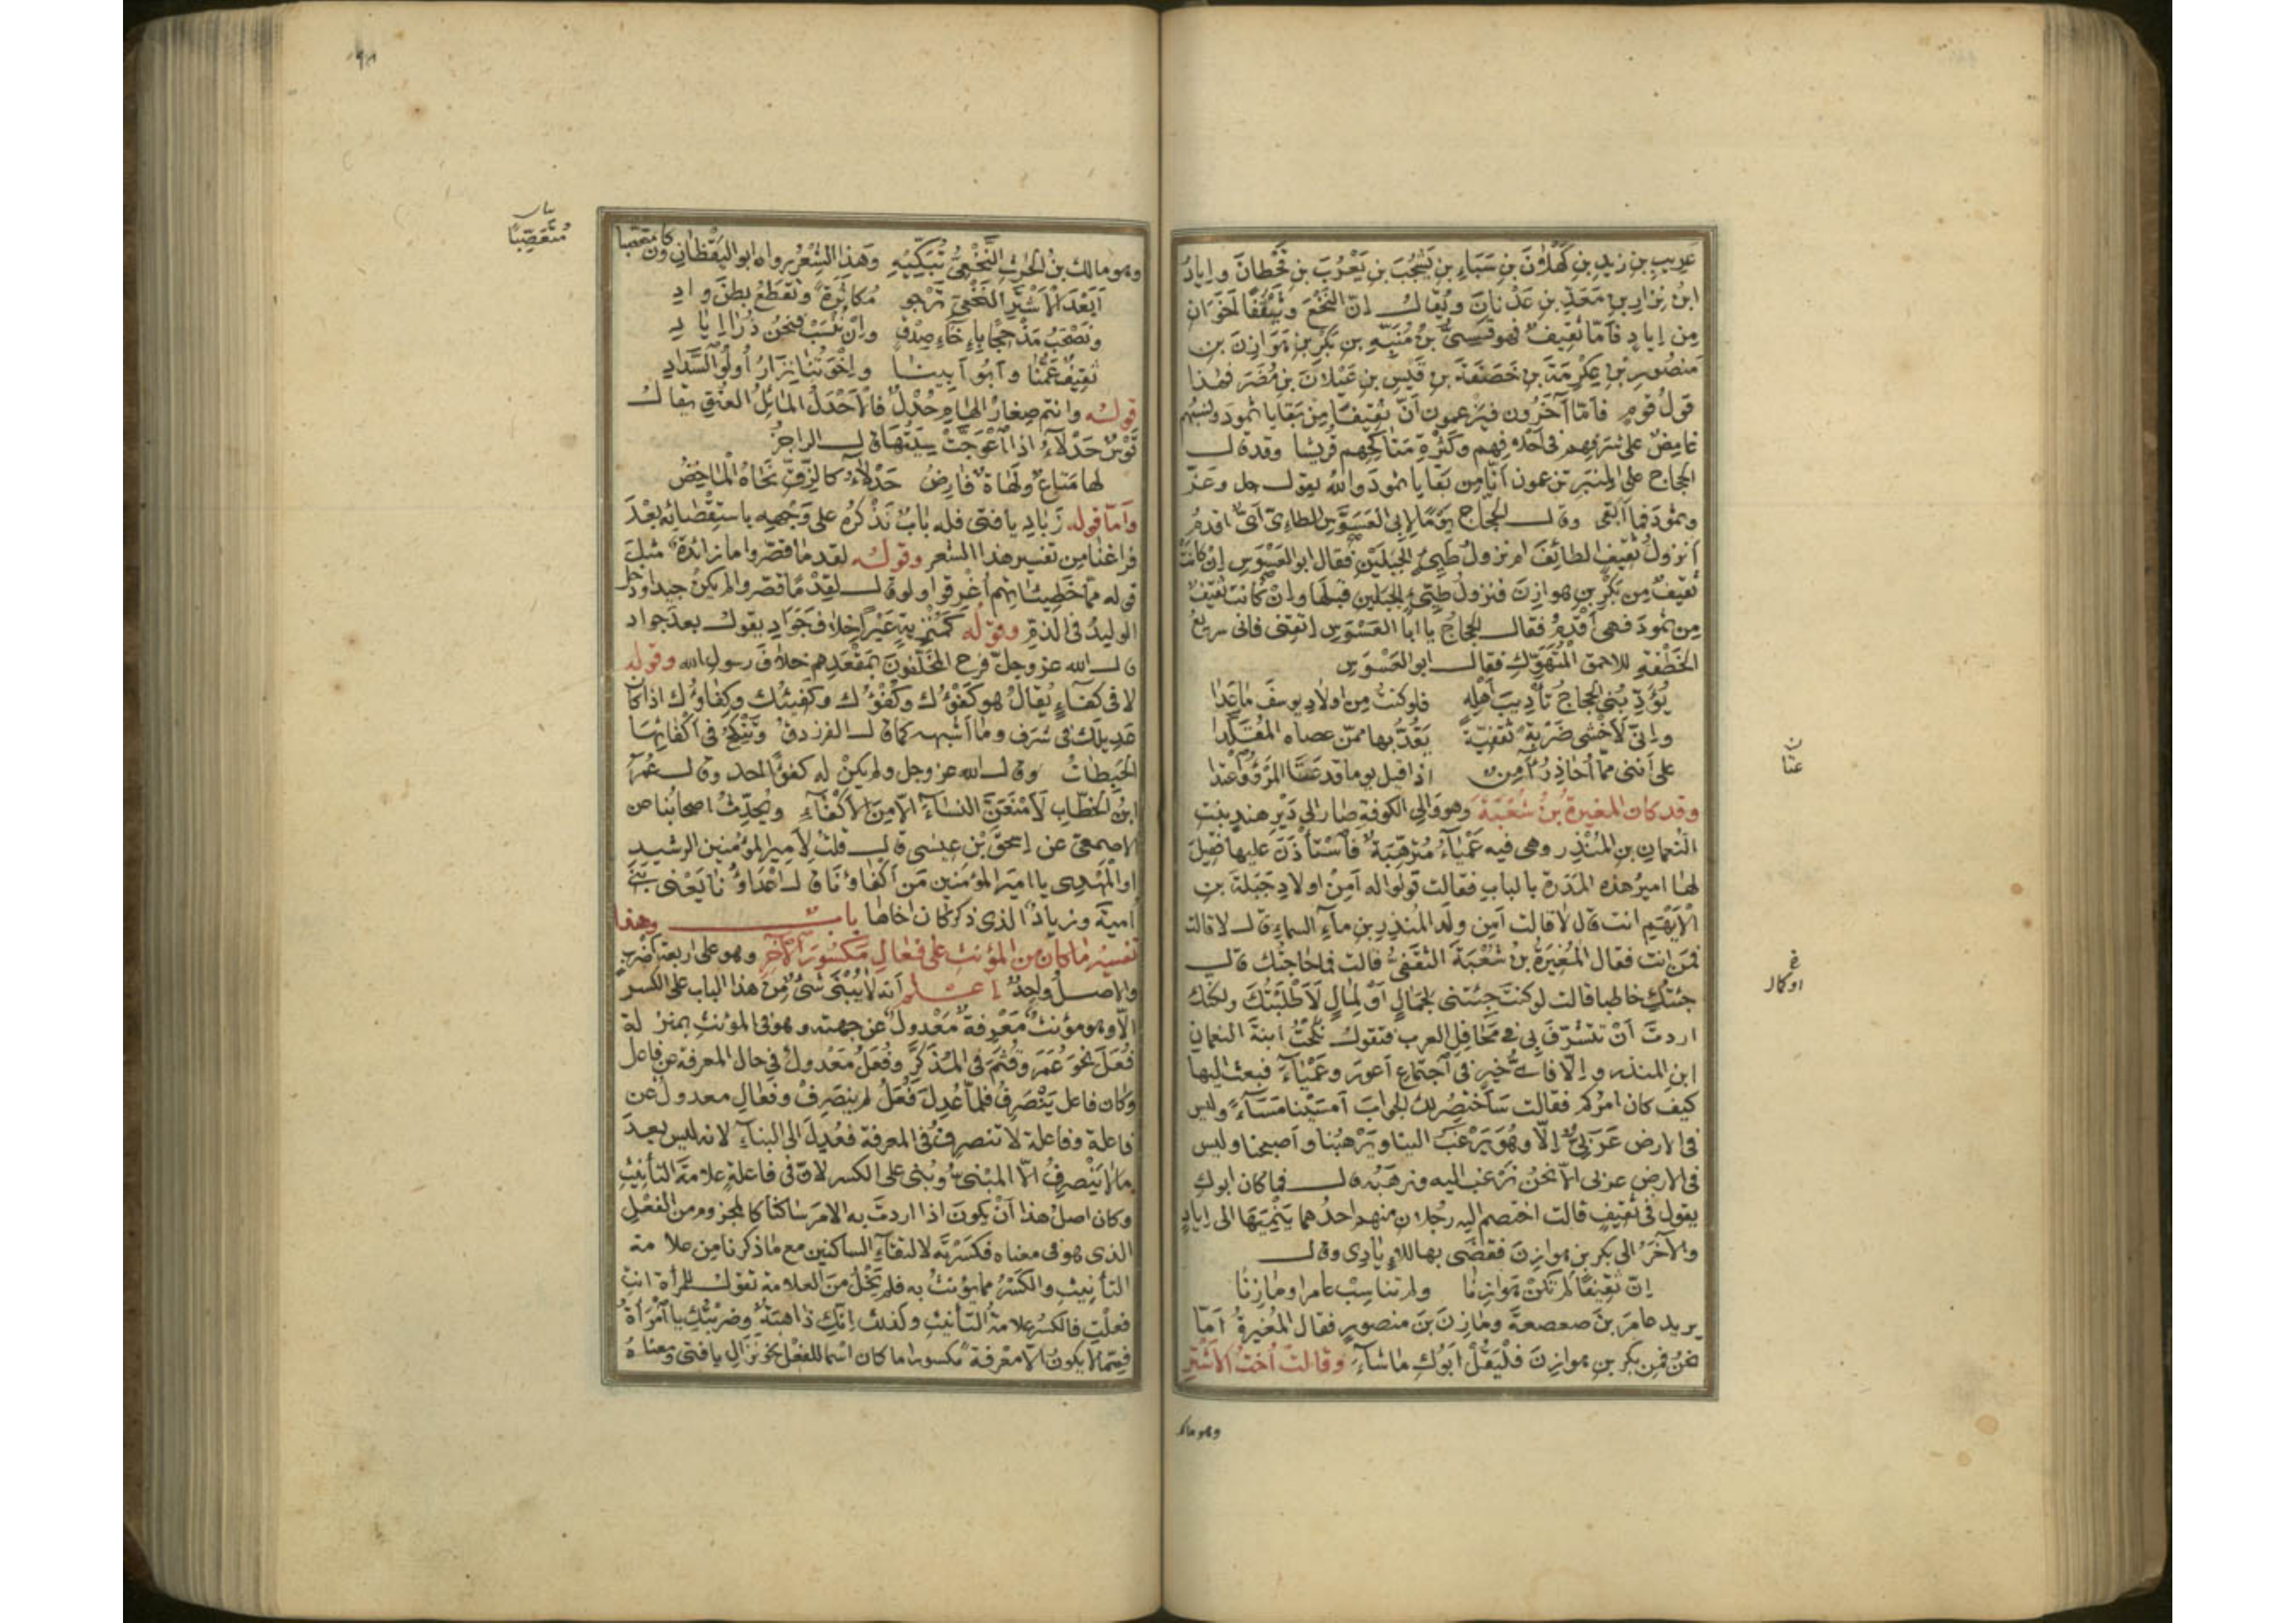 عَرِيبِ بنِ زيد بنِ كَهْلَانَ بنِ سَبَاءِ بنِ يَشْجُبَ بنِ يَعْرُبَ بنِ قَحْطانَ وإيادُ
ابنُ نِزارِ بنِ مَعَدِّ بنِ عَدْنانَ ويُقال إنّ النَّخَعَ وثَقِيفًا أَخَوَانِ
مِن إيادٍ فأمّا ثقيفٌ فهو قَسِيُّ بنُ مُنَبِّهِ بنِ بَكْرِ بنِ هَوَازِنَ بنِ
مَنصُورِ بنِ عِكْرِمَةَ بنِ خَصَفَةَ بنِ قَيْسِ بنِ عَيْلانَ بنِ مُضَرَ فهذا
قولُ قومٍ فأمّا آخَرُون فيزعمون أنّ ثقيفًا مِن بَقايا ثمودَ ونسبُهم
غامِضٌ على شرفِهم في أخلاقِهم وكثرةِ مَناكِحِهم قُريشًا وقد قال
الحجاج على المنبر تزعمون أنّا مِن بَقايا ثمودَ والله يقول جل وعَزّ
وثمودَ فما أبقى وقال الحجّاج يومًا لأبي العَسَوَّسِ الطائيّ أيٌّ اقدمُ
أنزولُ ثقيفٍ الطائفَ ام نزولُ طَيِّئٍ الجبلَيْنِ فقال ابو العَسَوَّسِ إن كانتْ
ثقيفٌ مِن بكرِ بنِ هوازِنَ فنزولُ طَيِّئٍ الجبلين قبلَها وإن كانت ثقيفٌ
مِن ثمودَ فهي أقدمُ فقال الحجاجُ يا أبا العَسَوَّسِ إتّقِني فاني سريعُ
الخَطْفةِ للاحمق المُتَهَوِّكِ فقال ابو العَسَوَّسِ
يُؤدِّبُني الحجاجُ تأديبَ أهلِهِ فلو كنتُ مِن أولادِ يوسفَ ما عَدا
وإنّي لأخشى ضَرْبةً ثَقَفيّةً يَقُدُّ بها ممّن عصاه المُقلَّدا
على أنني ممّا أُحاذِرُ آمِنٌ اذا قيل يوما قد عَتا المَرْءُ واعْتَدا
وقد كان المغيرة بنُ شُعْبَةَ وهو والي الكوفةِ صار إلى دَيْرِ هندٍ بنتِ
النعمانِ بنِ المُنذِر وهي فيه عَمْياءُ مُتَرَهِّبَةٌ فاسْتأذَنَ عليها فقيلَ
لها اميرُ هذه المَدَرةِ بالبابِ فقالت قولوا له أمِن أولادِ جَبَلةَ بنِ
الأيْهَمِ انت قال لا قالت أمِن ولدِ المُنذِرِ بنِ ماءِ السماءِ قال لا قالت
فمَن انت فقال المُغيرَةُ بنُ شُعْبَةَ الثقفيُّ قالت فما حاجتُك قال
جئتُكِ خاطبا قالت لو كنتَ جِئتَني لجَمالٍ أوْ لِمالٍ لأطْلَبْتُكَ ولكنّك
اردتَ أنْ تتشرّفَ بي في مَحافِلِ العرب فتقول نكحتُ ابنةَ النعمانِ
ابنِ المنذر وإلّا فأيُّ خيرٍ في اجتماعِ أعورَ وعَمْياءَ فبعث إليها
كيف كان امرُكم فقالت سأختصرُ لك الجوابَ أمْسَيْنا مَساءً وليس
في الارضِ عَرَبيٌّ إلّا وهُوَ يَرْغَبُ الينا ويَرْهبُنا وأصبحنا وليس
في الارضِ عربي الا نحنُ نرغب اليه ونرهبُه قال فما كان ابوكِ
يقول في ثقيفٍ قالت اختصم اليه رجلان منهم احدُهما يَنْمِيها الى إيادٍ
والآخَرُ الى بكرِ بنِ هوازِنَ فقضى بها للإياديّ وقال
إنّ ثقيفًا لم تكنْ هَوازِنا ولم تناسِبْ عامرا ومازِنا
يريد عامرَ بنَ صعصعةَ ومازنَ بنَ منصورٍ فقال المُغيرةُ أمّا
نحنُ فمِن بكرِ بنِ هوازِنَ فلْيَقُلْ أبوكِ ما شاءَ وقالتْ أختُ الأشترِ
وهو مالك
عتا
او كمال
وهو مالك بنُ الحرثِ النَّخَعِيُّ تُبَكِّيهِ وهذا الشعرُ رواه ابو اليَقْظانِ وكان متعصبا
مُتَعَصِّبًا
أبَعْدَ الأشْتَرِ النَّخَعِيِّ نَرْجو مُكاثَرَةً ونَقْطَعُ بطنَ وادِ
ونَصْحَبُ مَذْحِجًا بإخاءِ صِدْقٍ وإنْ نُنْسَبْ فنحنُ ذُرَا إيادِ
ثقيفٌ عَمُّنا وأبو أبينا وإخْوَتُنا نِزارُ أُولُو السَّدادِ
قوله وانتم صغارُ الهامِ حُدْلٌ فالأحْدَلُ المائلُ العنقِ يقال
قوسٌ حَدْلاءُ اذا اعْوَجَّتْ سِيَتُها قال الراجزُ
لها مَتاعٌ ولَهاةٌ فارِضُ حَدْلاءُ كالزِّقِّ نَحاهُ الماخِضُ
وأمّا قوله زَبادِ يا فتى فله بابٌ نذكرُه على وجهِه باستقصائه بعدَ
فراغنا مِن تفسير هذا الشعر وقوله لقد ما قصّروا ما زائدةٌ مثلَ
قوله ممّا خَطِيئاتِهم أُغْرِقوا ولو قال لقِدْمًا قصّروا لم يكنْ جيدا ودخل
الوليدُ في الذمِّ وقوله كمُنْزِيةِ عَيْرًا خِلافَ جَوادِ يقول بعدَ جواد
قال الله عز وجلّ فرح المُخلَّفونَ بمَقْعَدِهم خلافَ رسولِ الله وقوله
لا في كفاءٍ يُقالُ هو كَفْؤُك وكُفْؤُك وكَفيئُك وكِفاؤُك اذا كان
عَديلَك في شرف وما أشبهه كما قال الفرزدق وتُنْكَحُ في أكْفائِها
الحَبِطاتُ وقال الله عز وجل ولم يكنْ له كفوًا احد وقال عُمَرُ
ابنُ الخطّاب لأمْنَعَنَّ النساءَ الّا مِنَ الأكْفاءِ ويُحدِّثُ اصحابُنا عن
الاصمعيّ عن إسحقَ بنِ عيسى قال قلتُ لأميرِ المؤمنين الرشيد
او المَهْدِيِّ يا اميرَ المؤمنين مَن أكفاؤنا قال أعداؤُنا يَعْني بَنِي
أميةَ وزيادٌ الذي ذكر كان أخاها باب وهذا
تفسيرُ ما كان من المؤنث على فَعالِ مكسورَ الآخِرِ وهو على اربعة اضرب
والاصل واحدٌ إعلم أنه لا يُبْنَى شيءٌ مِن هذا الباب على الكسر
الّا وهو مؤنثٌ معرفةٌ معدولٌ عن جهته وهو في المؤنث بمنزلة
فُعَلَ نحو عُمَرَ وقُثَمَ في المُذَكَّرِ وفُعَلُ معدولٌ في حال المعرفة عن فاعلٍ
وكان فاعل يَنْصرفُ فلمّا عُدِلَ فُعَلُ لم ينصرِفْ وفَعالِ معدولٌ عن
فاعلة وفاعلة لا تنصرفُ في المعرفة فعُدِلَ إلى البناءِ لانه ليس بعدَ
ما لا يَنْصرِفُ الا المبْنيُّ وبُني على الكسر لانّ في فاعلةٍ علامةَ التأنيثِ
وكان اصلُ هذا أنْ يكونَ اذا اردتَ به الامرَ ساكنًا كالمجزوم من الفعلِ
الذي هو في معناه فكسرتَه لالتقاءِ الساكنين مع ما ذكرنا مِن علامة
التأنيث والكسرُ مما يؤنّثُ به فلم يَخْلُ مِنَ العلامة تقول للمرأة انتِ
فعلتِ فالكسرُ علامةُ التأنيثِ وكذلك إنّكِ ذاهبةٌ وضربتُكِ يا امْرأةُ
فممّا لا يكونُ الا معرفةً مكسورا ما كان اسما للفعْلِ نحو نَزالِ يا فتى ومعناهُ